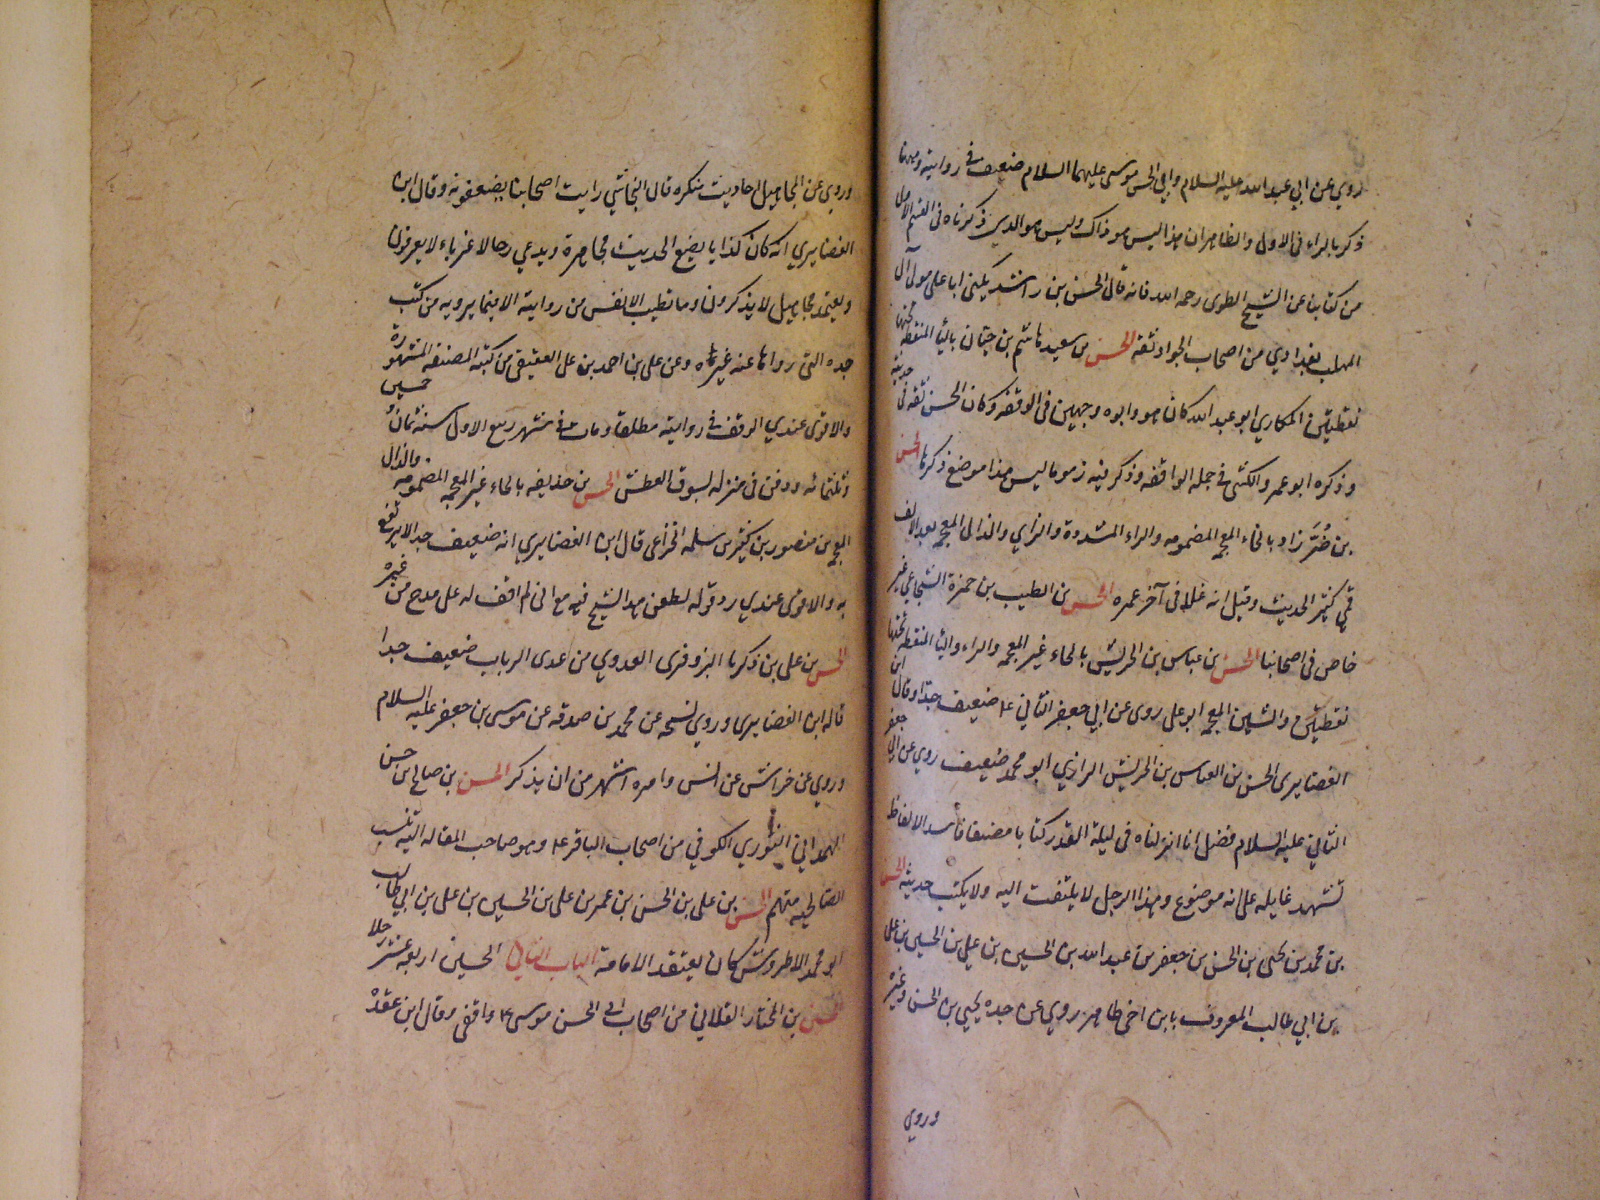 روي عن ابي عبد الله عليه السلام وابي الحسن موسى عليهما السلام ضعيف في روايته وربما
ذكر بالراء في الاول والظاهر ان هذا ليس هو ذاك وليس هو الذي ذكرناه في القسم الاول
من كتابنا عن الشيخ الطوسي رحمه الله فانه قال الحسن بن راشد يكنى ابا علي مولى آل
المهلب بغدادي من اصحاب الجواد ثقه الحسن بن سعيد هاشم بن حيان باليا المنقطه تحتها
نقطتين المكاري ابو عبد الله كان هو وابوه وجهين في الوقفه وكان الحسن ثقه في حديثه
وذكره ابو عمرو الكشي في جمله الواقفه وذكر فيه ذموما ليس هذا موضع ذكرها الحسن
بن خُرَّزاد بالخاء المعجمه المضمومه والراء المشدده والزاي والذال المعجمه بعد الالف
قمي كثير الحديث وقيل انه غلا في آخر عمره الحسن بن الطيب بن حمزة الشجاعي غير
خاص في اصحابنا الحسن بن عباس بن الحريش بالحاء غير المعجمه والراء واليا المنقطه تحتها
نقطتين والشين المعجمه ابو علي روى عن ابي جعفر الثاني ع ضعيف جدا وقال ابن
الغضايري الحسن بن العباس بن الحريش الرازي ابو محمد ضعيف روي عن ابي جعفر
الثاني عليه السلام فضل انا انزلناه في ليلة القدر كتابا مصنفا فاسد الالفاظ
تشهد مخايله على انه موضوع وهذا الرجل لا يلتفت اليه ولا يكتب حديثه الحسن
بن محمد بن يحيى بن الحسن بن جعفر بن عبد الله بن الحسين بن علي بن الحسين بن علي
بن ابي طالب المعروف بابن اخي طاهر روي عن جده يحيى بن الحسن وغيره
وروي
وروي عن المجاهيل احاديث منكره قال النجاشي رايت اصحابنا يضعفونه وقال ابن
الغضايري انه كان كذابا يضع الحديث مجاهرة ويدعي رجالا غرباء لا يعرفون
ويعتمد مجاهيل لا يذكرون وما تطيب الانفس من روايته الا فيما يرويه من كتب
جده التي رواها عنه غيره وعن علي بن احمد بن علي العقيقي من كتبه المصنفه المشهورة
والاقوى عندي الوقف في روايته مطلقا ومات في شهر ربيع الاول سنة ثمان وخمسين
وثلثمائه ودفن في منزله بسوق العطش الحسن بن حذيفه بالحاء غير المعجمه المضمومه والذال
المعجمه بن منصور بن كثير بن سلمه الخزاعي قال ابن الغضايري انه ضعيف جدا لا يرتفع
به والاقوى عندي رد قوله لطعن هذا الشيخ فيه مع اني لم اقف له على مدح من غيره
الحسن بن علي بن زكريا البزوفرى العدوي من عدى الرباب ضعيف جدا
قاله ابن الغضايرى وروي نسخه عن محمد بن صدقه عن موسى بن جعفر عليه السلام
وروي عن خراش عن انس وامره اشهر من ان يذكر الحسن بن صالح بن حسن
الهمداني الثوري الكوفي من اصحاب الباقر ع وهو صاحب المقاله اليه تنسب
الصالحيه منهم الحسن بن علي بن الحسن بن عمر بن علي بن الحسين بن علي بن ابي طالب
ابو محمد الاطروش كان يعتقد الامامة الباب الثاني الحسين اربعه عشر رجلا
الحسين بن المختار القلاني من اصحاب ابي الحسن موسى ع واقفى وقال ابن عقدْ